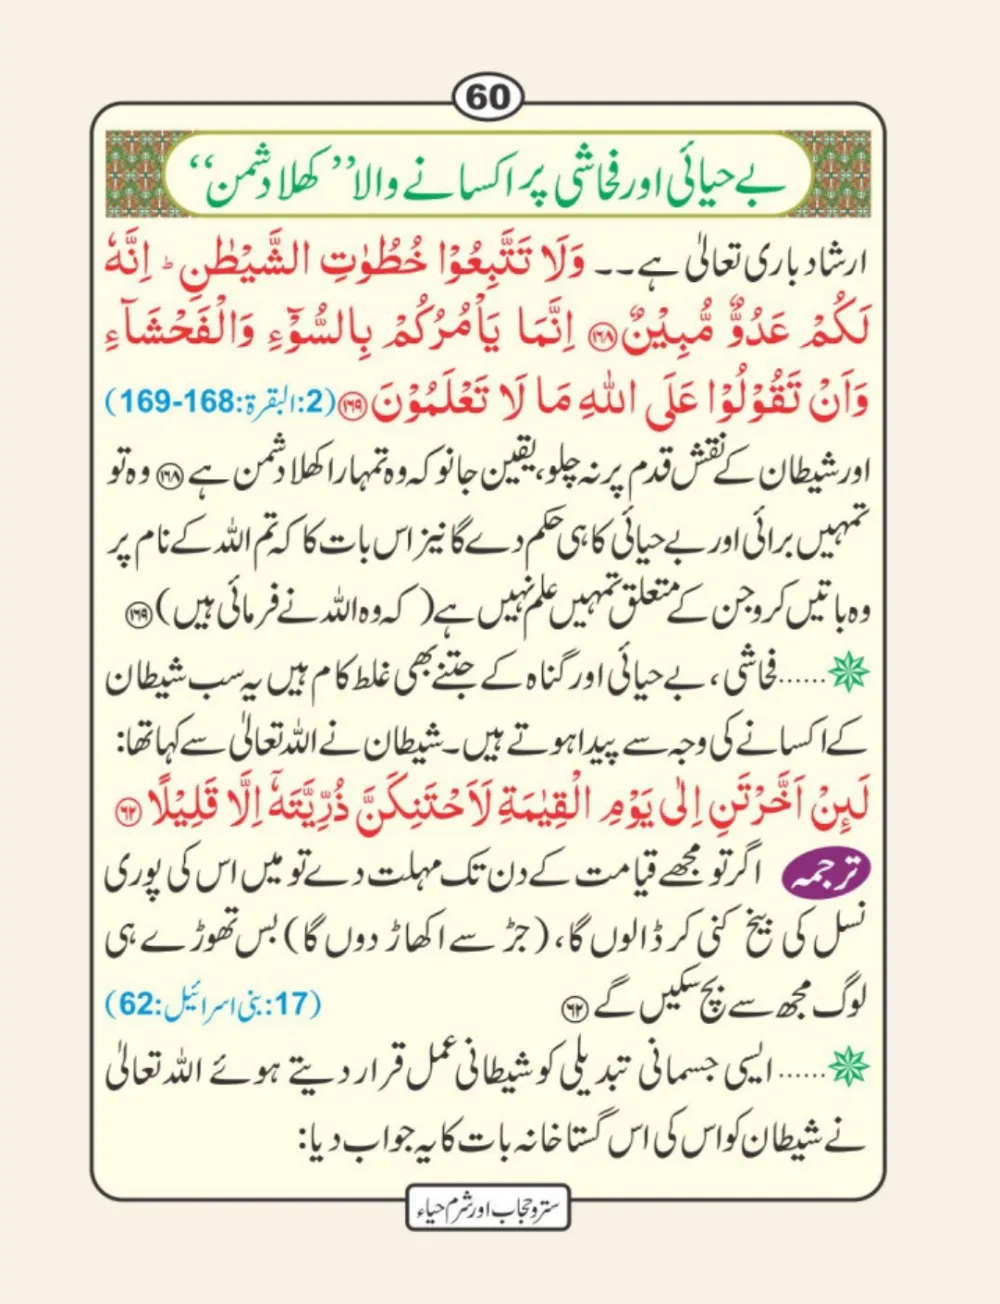 60
بے حیائی اور فحاشی پر اکسانے والا ’’کھلا دشمن‘‘
ارشاد باری تعالیٰ ہے۔۔ وَلَا تَتَّبِعُوْا خُطُوٰتِ الشَّيْطٰنِ ؕ اِنَّهٗ
لَكُمْ عَدُوٌّ مُّبِيْنٌ ﴿۱۶۸﴾ اِنَّمَا يَاْمُرُكُمْ بِالسُّوْٓءِ وَالْفَحْشَآءِ
وَاَنْ تَقُوْلُوْا عَلَى اللّٰهِ مَا لَا تَعْلَمُوْنَ ﴿۱۶۹﴾ (2:البقرۃ:168-169)
اور شیطان کے نقش قدم پر نہ چلو، یقین جانو کہ وہ تمہارا کھلا دشمن ہے ﴿۱۶۸﴾ وہ تو
تمہیں برائی اور بے حیائی کا ہی حکم دے گا نیز اس بات کا کہ تم اللہ کے نام پر
وہ باتیں کرو جن کے متعلق تمہیں علم نہیں ہے (کہ وہ اللہ نے فرمائی ہیں) ﴿۱۶۹﴾
......فحاشی، بے حیائی اور گناہ کے جتنے بھی غلط کام ہیں یہ سب شیطان
کے اکسانے کی وجہ سے پیدا ہوتے ہیں۔ شیطان نے اللہ تعالیٰ سے کہا تھا:
لَىِٕنْ اَخَّرْتَنِ اِلٰى يَوْمِ الْقِيٰمَةِ لَاَحْتَنِكَنَّ ذُرِّيَّتَهٗٓ اِلَّا قَلِيْلًا ﴿۶۲﴾
ترجمہ اگر تو مجھے قیامت کے دن تک مہلت دے تو میں اس کی پوری
نسل کی بیخ کنی کر ڈالوں گا، (جڑ سے اکھاڑ دوں گا) بس تھوڑے ہی
لوگ مجھ سے بچ سکیں گے ﴿۶۲﴾ (17:بنی اسرائیل:62)
......ایسی جسمانی تبدیلی کو شیطانی عمل قرار دیتے ہوئے اللہ تعالیٰ
نے شیطان کو اس کی اس گستاخانہ بات کا یہ جواب دیا:
ستر و حجاب اور شرم حیاء